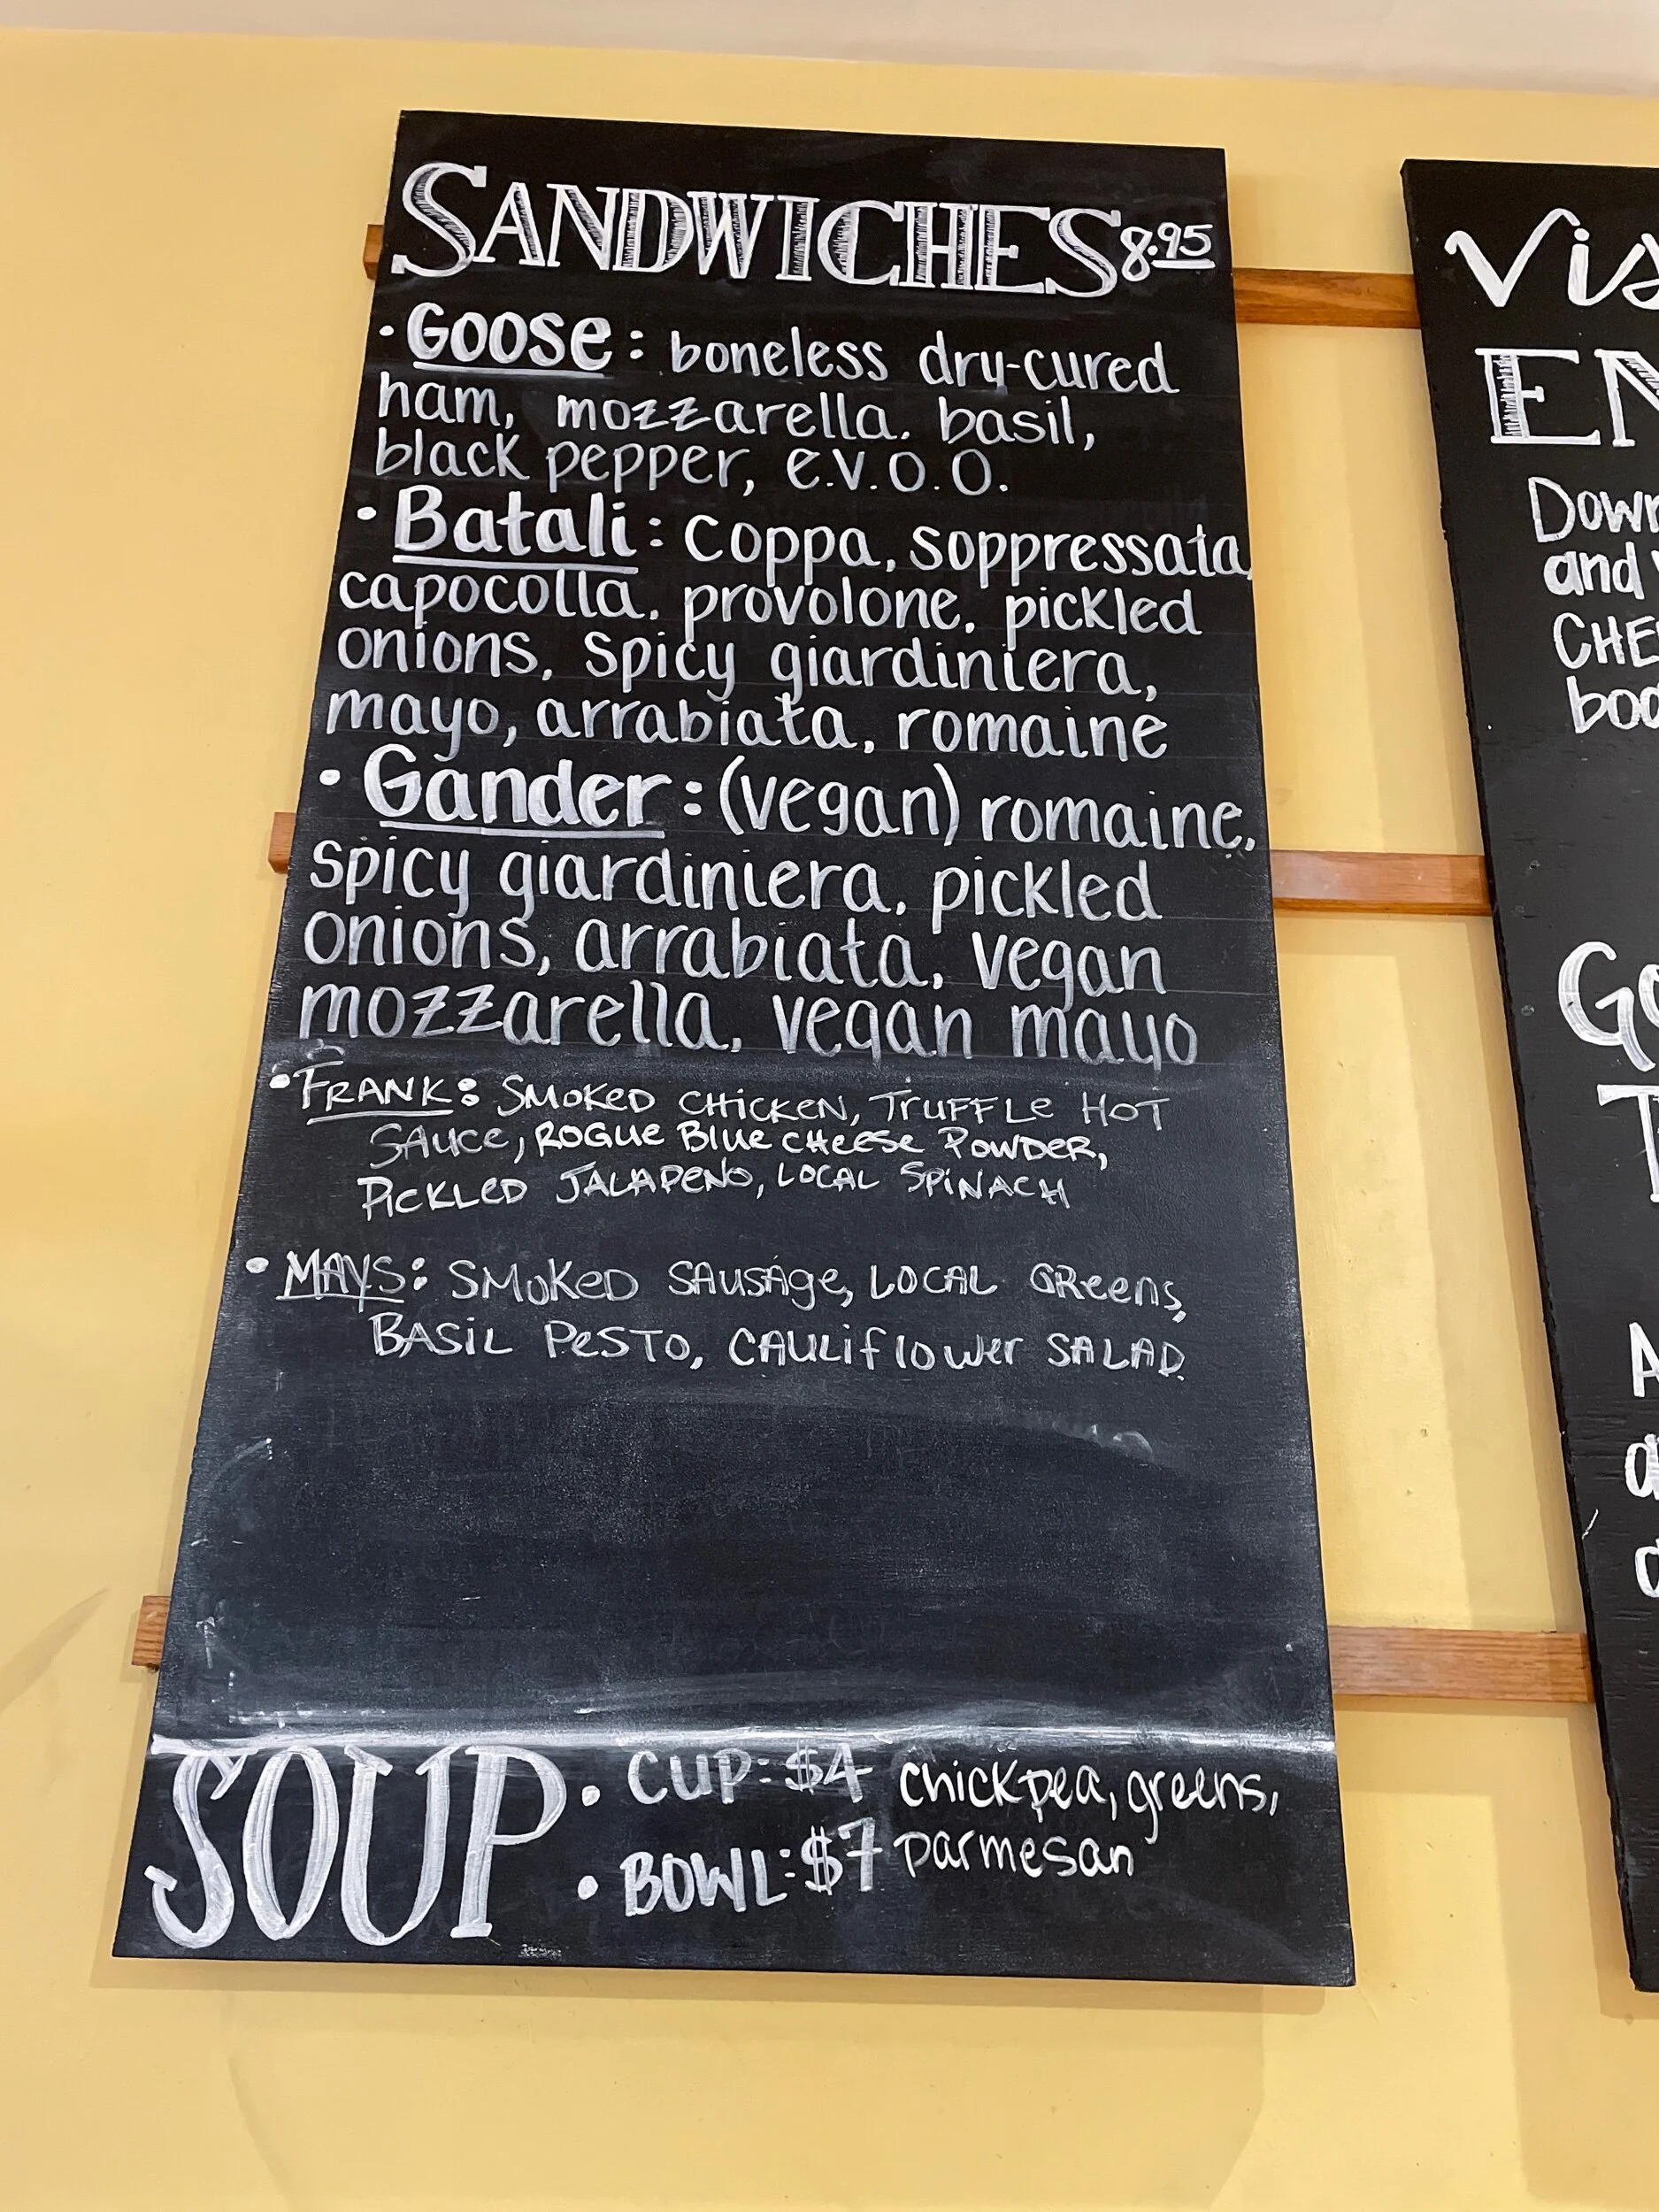 SANDWICHES 8.95
• GOOSE: boneless dry-cured
ham, mozzarella. basil,
black pepper, e.v.o.o.
• Batali: coppa, soppressata,
capocolla, provolone, pickled
onions, spicy giardiniera,
mayo, arrabiata, romaine
• Gander: (vegan) romaine,
spicy giardiniera, pickled
onions, arrabiata, vegan
mozzarella, vegan mayo
• FRANK: SMOKED CHICKEN, TRUFFLE HOT
SAUCE, ROGUE BLUE CHEESE POWDER,
PICKLED JALAPENO, LOCAL SPINACH
• MAYS: SMOKED SAUSAGE, LOCAL GREENS,
BASIL PESTO, CAULIFLOWER SALAD.
SOUP • CUP: $4 chickpea, greens,
• BOWL: $7 parmesan
and